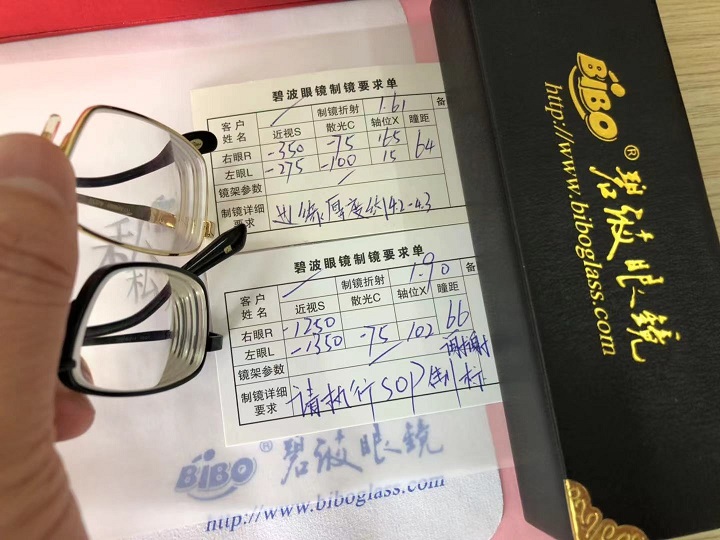 碧波眼镜制镜要求单
客户姓名 制镜折射 1.61 备
近视S 散光C 轴位X 瞳距
右眼R -350 -75 165 64
左眼L -275 -100 15
镜架参数
制镜详细要求 边缘厚度约4.2-4.3
碧波眼镜制镜要求单
客户姓名 制镜折射 1.90 备
近视S 散光C 轴位X 瞳距
右眼R -1250 66
左眼L -1350 -75 102
镜架参数
制镜详细要求 请执行SOP制标 谢谢
BiBO® 碧波眼镜
http://www.biboglass.com
BiBO® 碧波眼镜
http://www.biboglass.com
私
私